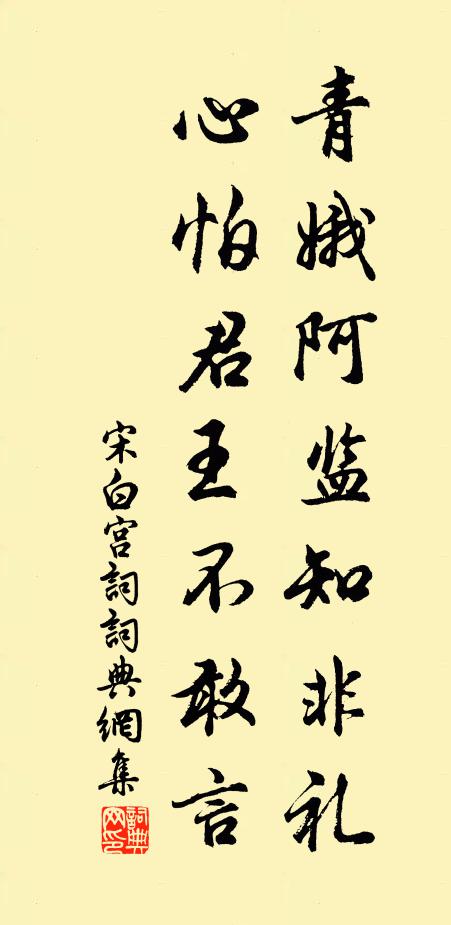 青娥阿监知非礼
心怕君王不敢言
宋白宫詞詞典網集
詞典
网印